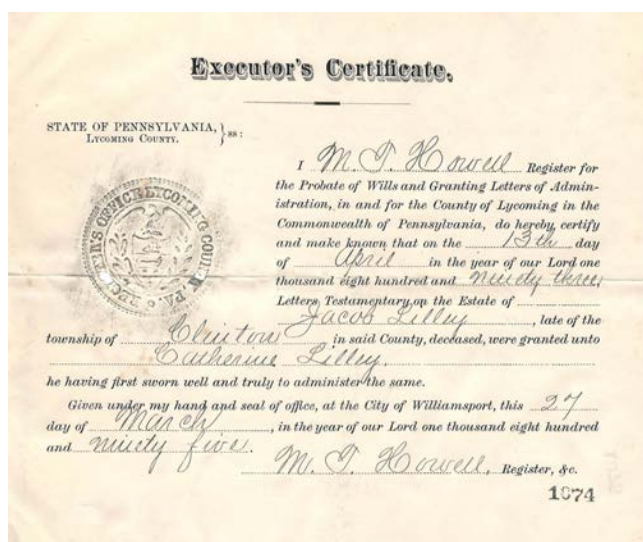 Executor's Certificate.
STATE OF PENNSYLVANIA, } ss:
LYCOMING COUNTY.
I M. T. Howell Register for
the Probate of Wills and Granting Letters of Admin-
istration, in and for the County of Lycoming in the
Commonwealth of Pennsylvania, do hereby, certify
and make known that on the 13th day
of April in the year of our Lord one
thousand eight hundred and ninety three
Letters Testamentary on the Estate of
Jacob Lilley, late of the
township of Clinton in said County, deceased, were granted unto
Catherine Lilley,
he having first sworn well and truly to administer the same.
Given under my hand and seal of office, at the City of Williamsport, this 27
day of March, in the year of our Lord one thousand eight hundred
and ninety five.
M. T. Howell, Register, &c.
1874
REGISTER'S OFFICE LYCOMING COUNTY PA.